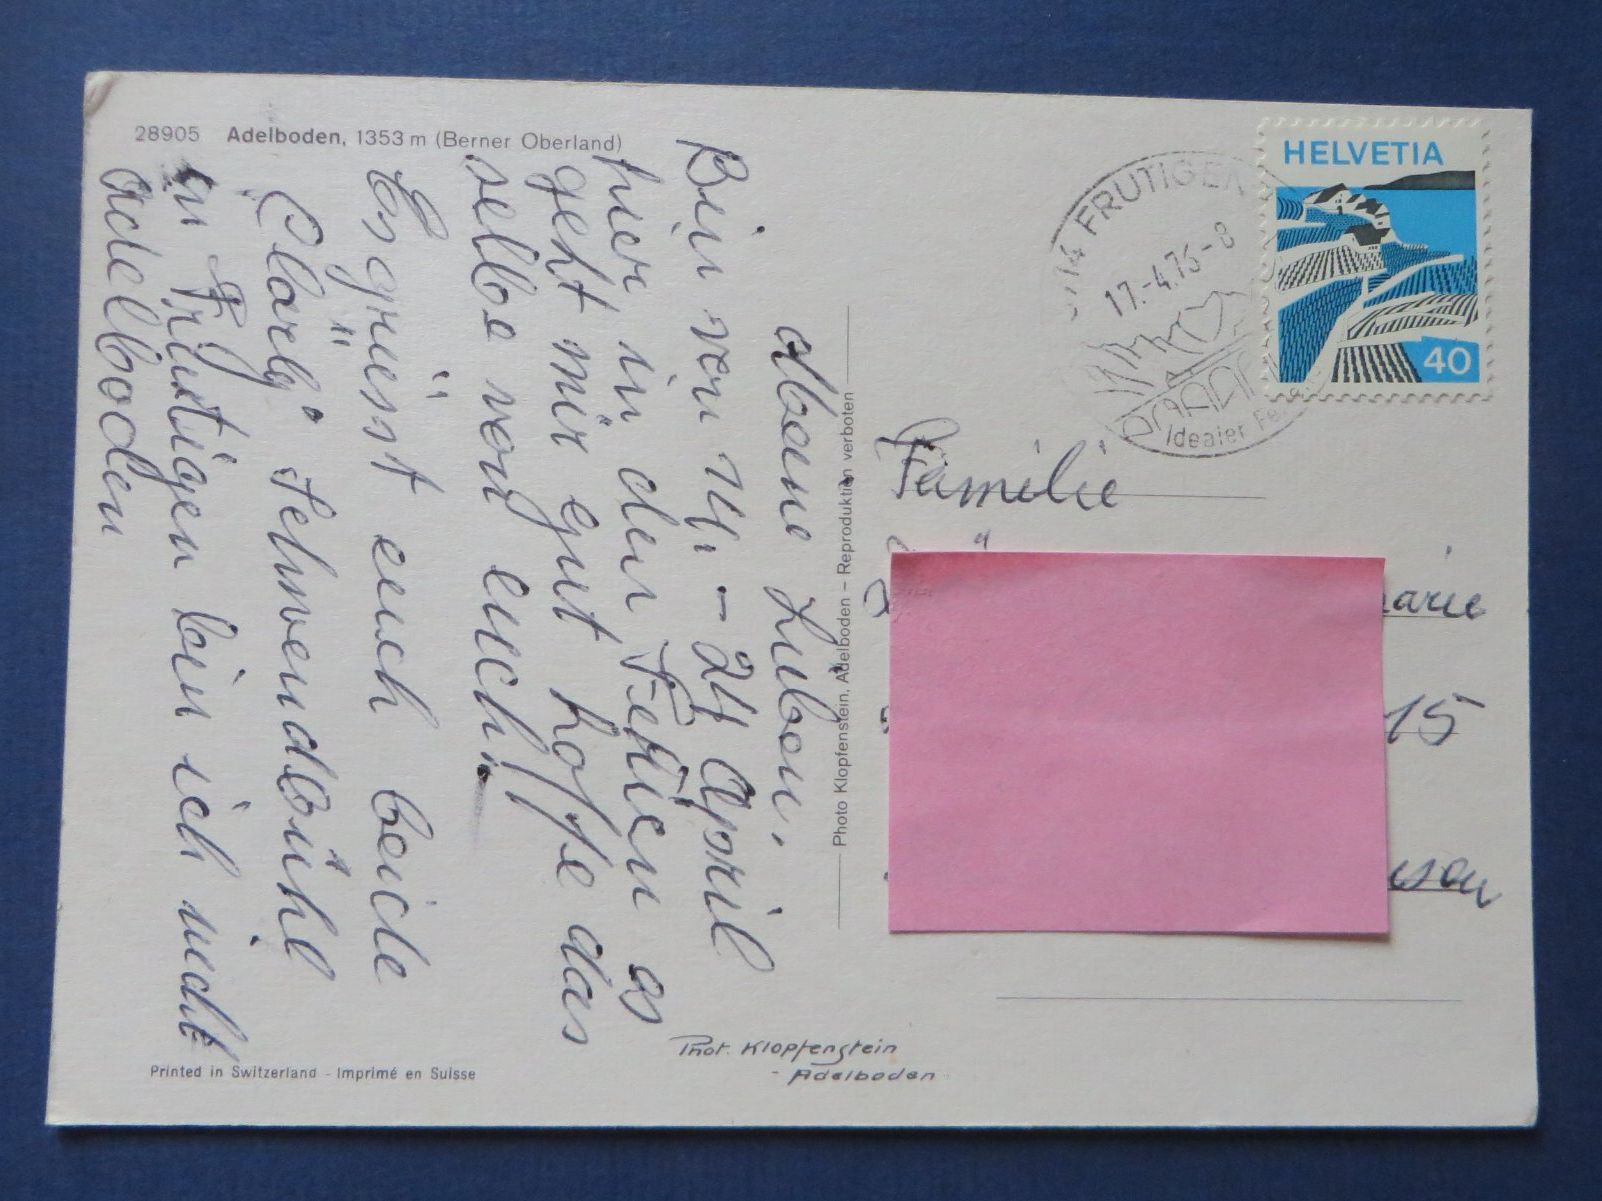 28905 Adelboden, 1353 m (Berner Oberland)
Meine Lieben.
Bin von 14. - 24 April
hier in den Ferien es
geht mir gut hoffe das
selbe von euch!
Es grüsst euch beide
Clärly Schwendbühl
in Frutigen bin ich nicht
Adelboden
Printed in Switzerland - Imprimé en Suisse
Photo Klopfenstein, Adelboden – Reproduktion verboten
Phot. Klopfenstein
- Adelboden
FRUTIGEN
17.-4.75-8
Idealer
HELVETIA
40
Familie
15